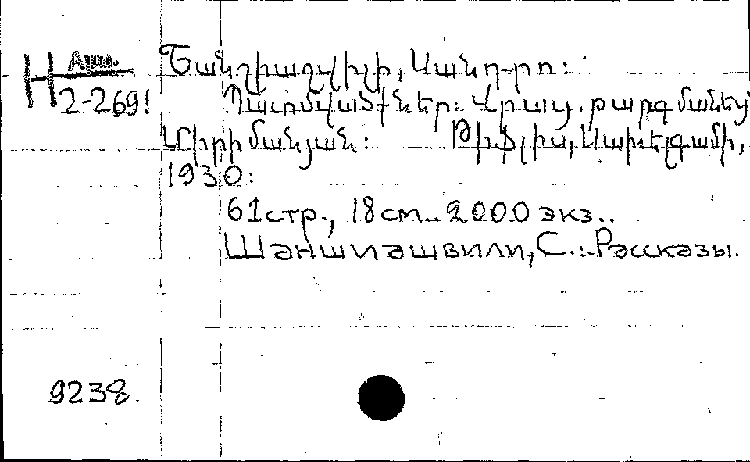 Н Арм.
2-2691
Շանշիաշվիլի, Սանդ-րո:
Պատմվածքներ: Վրաց. թարգմանեց
Միրիմանյան: Թիֆլիս, Սախելգամի,
1930:
61стр., 18см.. 2000 экз..
Шаншиашвили, С..: Рассказы.
9238